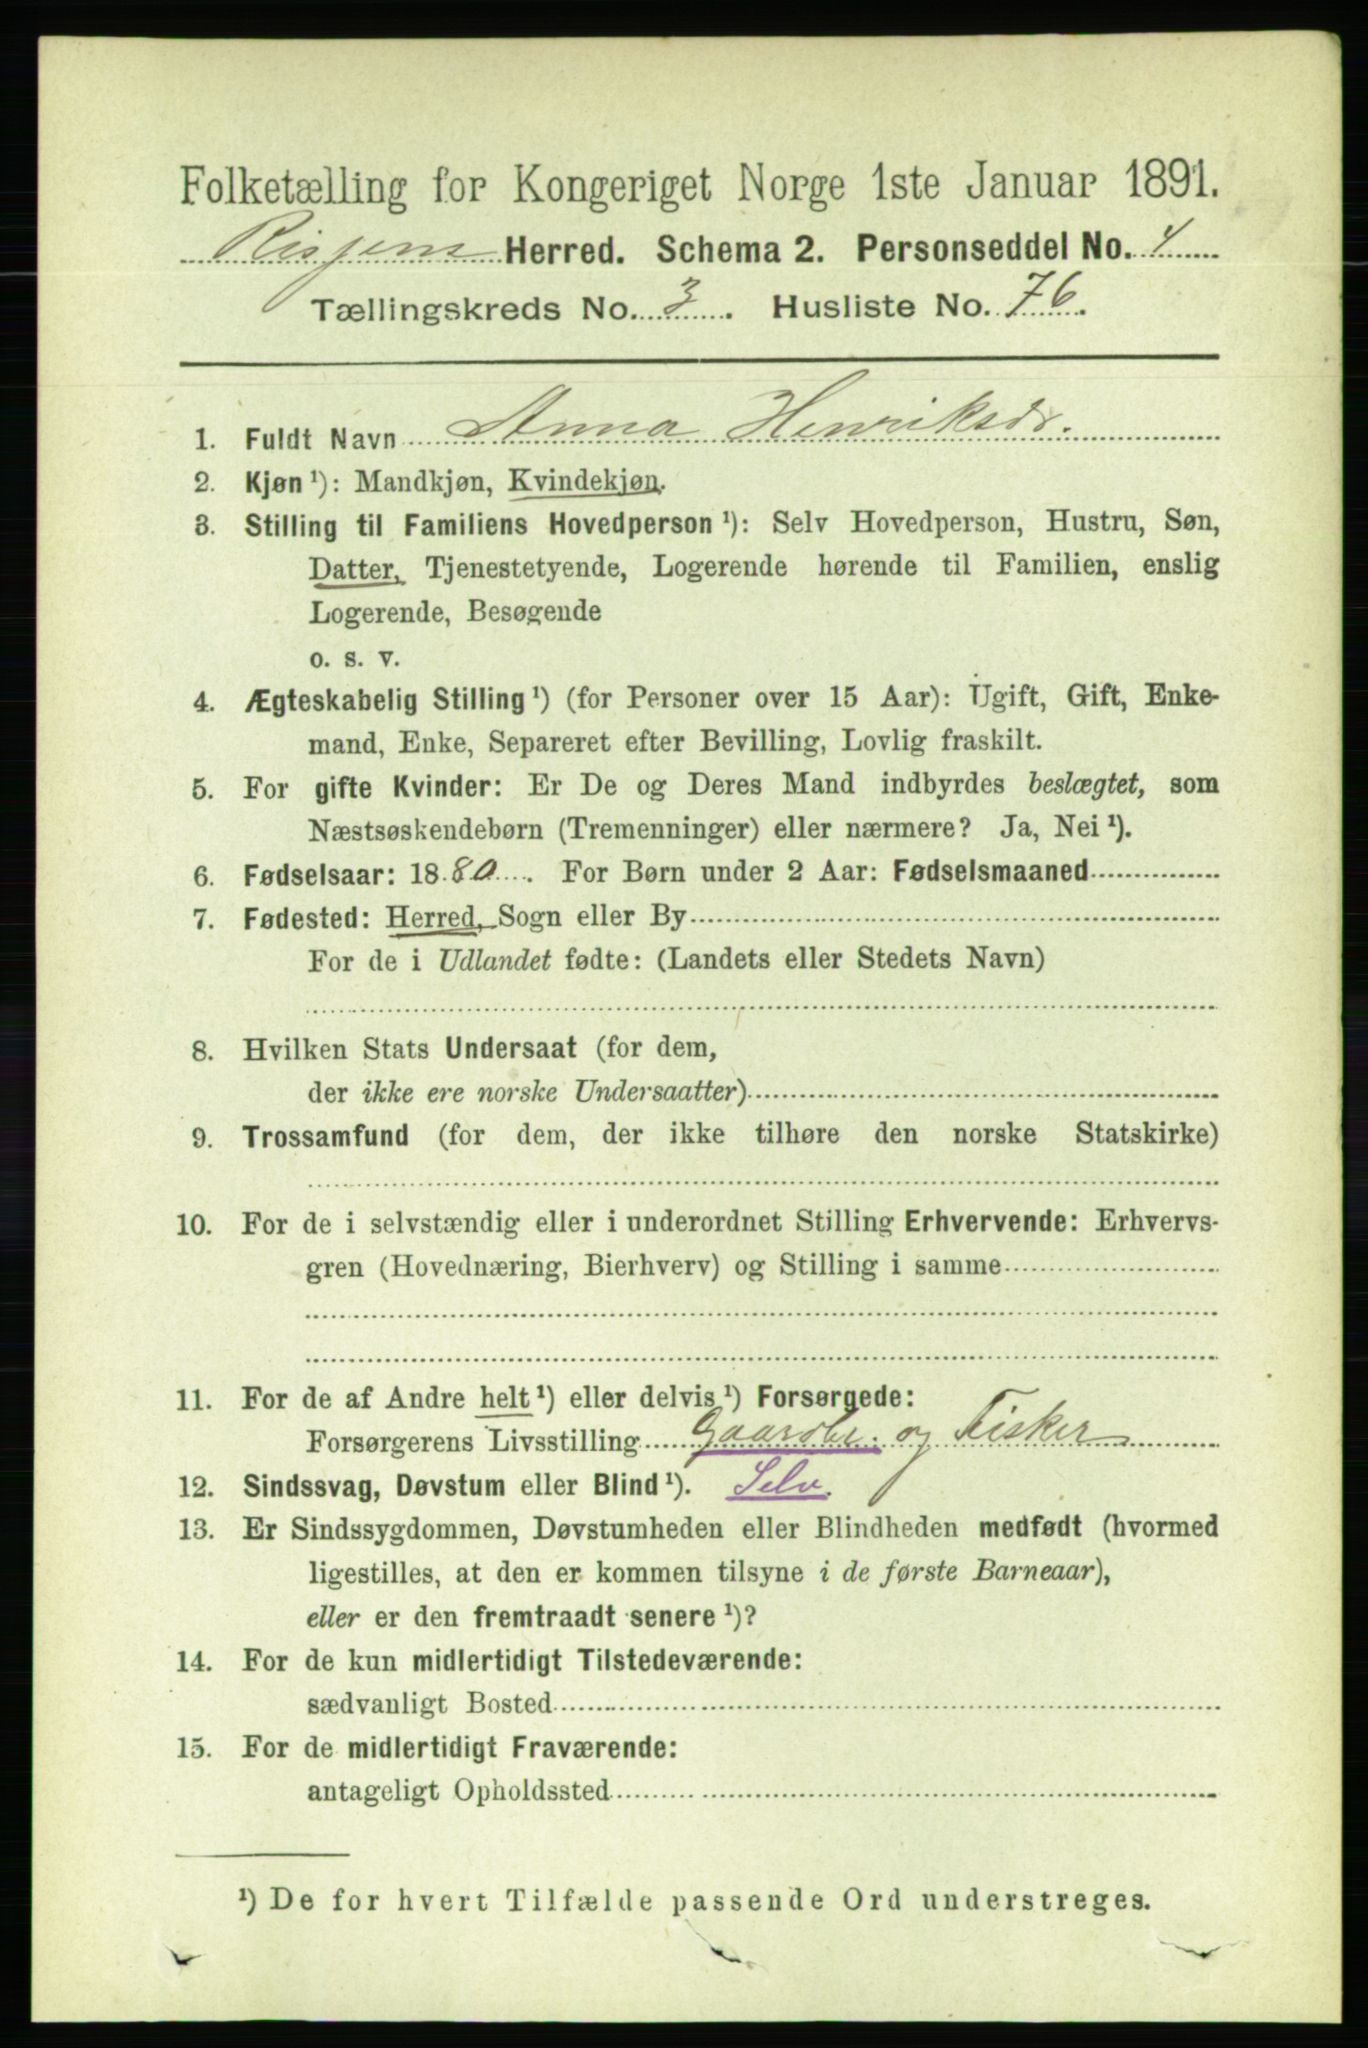 Folketælling for Kongeriget Norge 1ste Januar 1891.
Rissens Herred. Schema 2. Personseddel No. 4
Tællingskreds No. 3. Husliste No. 76.
1. Fuldt Navn Anna Henriksdr.
2. Kjøn ¹): Mandkjøn, Kvindekjøn.
3. Stilling til Familiens Hovedperson ¹): Selv Hovedperson, Hustru, Søn,
Datter, Tjenestetyende, Logerende hørende til Familien, enslig
Logerende, Besøgende
o. s. v.
4. Ægteskabelig Stilling ¹) (for Personer over 15 Aar): Ugift, Gift, Enke-
mand, Enke, Separeret efter Bevilling, Lovlig fraskilt.
5. For gifte Kvinder: Er De og Deres Mand indbyrdes beslægtet, som
Næstsøskendebørn (Tremenninger) eller nærmere? Ja, Nei ¹).
6. Fødselsaar: 1880. For Børn under 2 Aar: Fødselsmaaned
7. Fødested: Herred, Sogn eller By
For de i Udlandet fødte: (Landets eller Stedets Navn)
8. Hvilken Stats Undersaat (for dem,
der ikke ere norske Undersaatter)
9. Trossamfund (for dem, der ikke tilhøre den norske Statskirke)
10. For de i selvstændig eller i underordnet Stilling Erhvervende: Erhvervs-
gren (Hovednæring, Bierhverv) og Stilling i samme
11. For de af Andre helt ¹) eller delvis ¹) Forsørgede:
Forsørgerens Livsstilling Gaardbr. og Fisker
12. Sindssvag, Døvstum eller Blind ¹). Selv.
13. Er Sindssygdommen, Døvstumheden eller Blindheden medfødt (hvormed
ligestilles, at den er kommen tilsyne i de første Barneaar),
eller er den fremtraadt senere ¹)?
14. For de kun midlertidigt Tilstedeværende:
sædvanligt Bosted
15. For de midlertidigt Fraværende:
antageligt Opholdssted
¹) De for hvert Tilfælde passende Ord understreges.